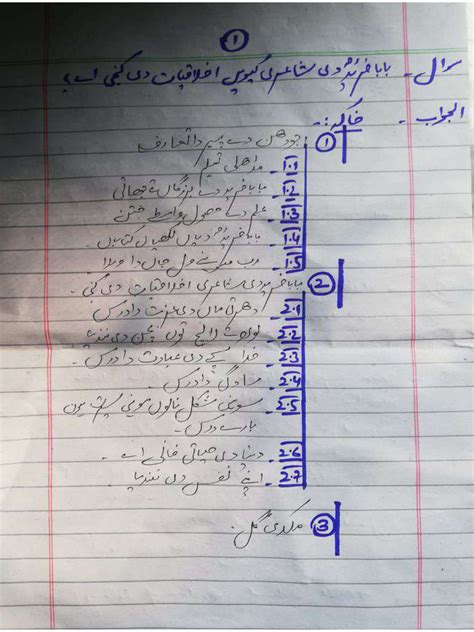 ①
سوال۔ بابا فریدؒ دی شاعری کیوں اخلاقیات دی کنجی اے؟
الجواب۔ خاکہ:۔
① جودھن دے پیر دا تعارف
1.1 مڈھلی تعلیم
1.2 بابا فرید دے بزرگاں تے بھائی
1.3 علم دے حصول واسطے جتن
1.4 بابا فریدؒ دیاں لکھیاں کتاباں۔
1.5 رب سوہنے ول جاں دا ویلا
② بابا فرید دی شاعری اخلاقیات دی کنجی۔
2.1 دھرتی ماں دی عزت دا درس
2.2 لوبھ لالچ توں بچن دی نندیا
2.3 خدا کے دی عبادت دا درس۔
2.4 سادگی دا درس۔
2.5 سوہنی شکل نالوں سوہنی سیرت ہون بارے درس۔
2.6 دنیا دی حیاتی فانی اے۔
2.7 اپنے نفس دی نندیا
③ مکدی گل۔